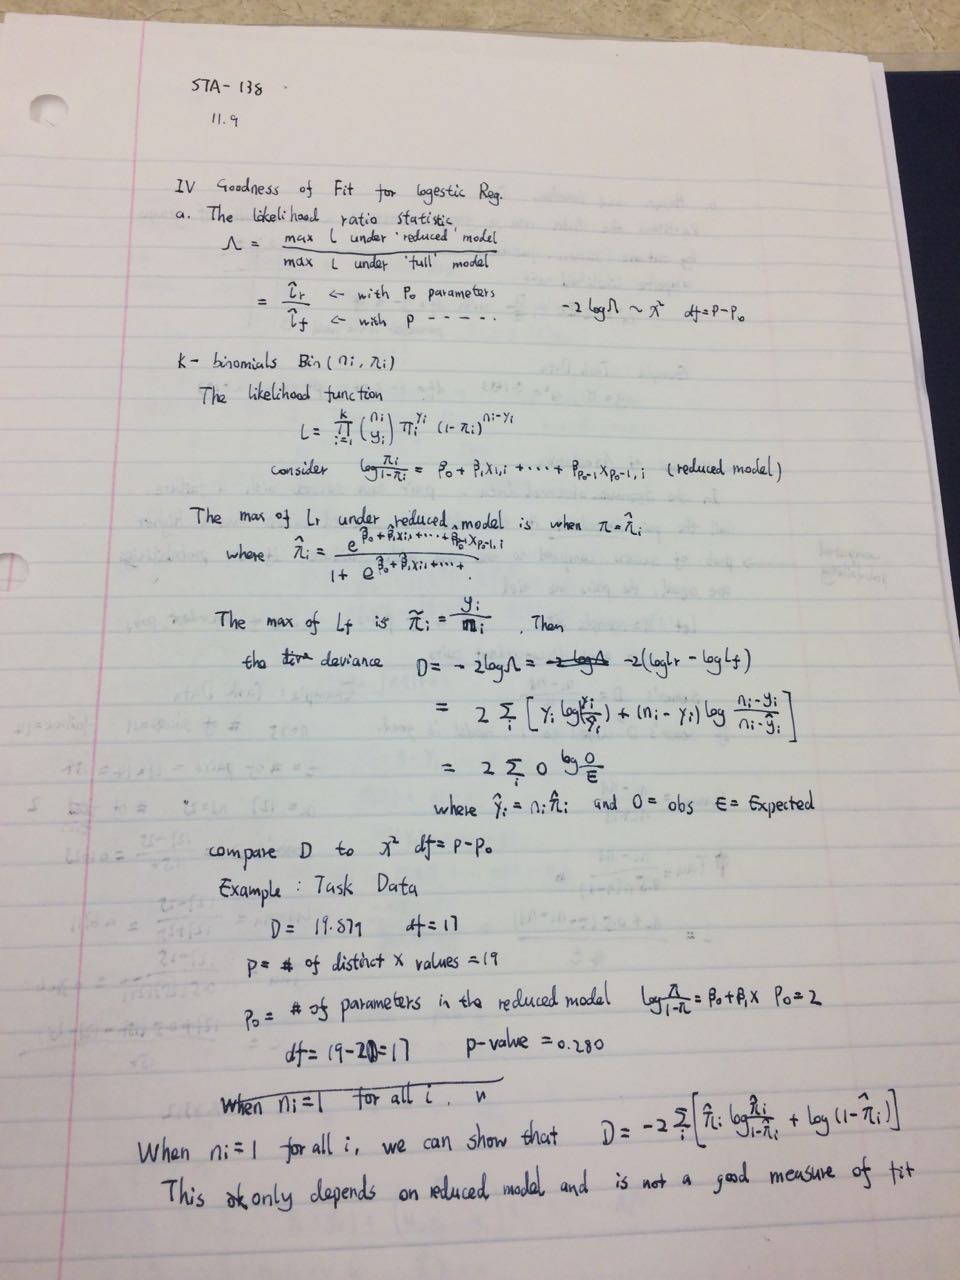 STA-138
11.9
IV Goodness of Fit for Logestic Reg.
a. The likelihood ratio statistic
Λ = max L under 'reduced' model / max L under 'full' model
= L̂r / L̂f ← with P₀ parameters ← with P - - - - - - -2 log Λ ~ χ² df = P-P₀
K- binomials Bin(ni, πi)
The likelihood function
L = ∏_{i=1}^{k} (ni yi) πi^{yi} (1-πi)^{ni-yi}
consider log πi/(1-πi) = β₀ + β₁x₁,i + ··· + β_{P₀-1} x_{P₀-1,i} (reduced model)
The max of Lr under reduced model is when π = π̂i
where π̂i = e^{β̂₀+β̂₁x₁,i+···+β̂_{P₀-1}x_{P₀-1,i}} / 1 + e^{β̂₀+β̂₁x₁,i+···+}.
The max of Lf is π̃i = yi/ni. Then
the deviance D = -2 log Λ = -2 log Λ -2(log Lr - log Lf)
= 2 Σ_i [yi log(yi/ŷi) + (ni - yi) log (ni-yi)/(ni-ŷi)]
= 2 Σ_i O log O/E
where ŷi = ni π̂i and O = obs E = Expected
compare D to χ² df = P-P₀
Example : Task Data
D = 19.879 df = 17
P = # of distinct x values = 19
P₀ = # of parameters in the reduced model log π/(1-π) = β₀ + β₁x P₀ = 2
df = 19-2=17 p-value = 0.280
When ni = 1 for all i.
When ni = 1 for all i, we can show that D = -2 Σ_i [π̂i log π̂i/(1-π̂i) + log (1-π̂i)]
This only depends on reduced model and is not a good measure of fit